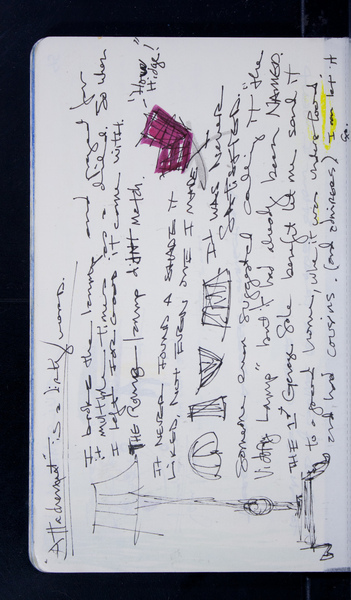 "Attachment" is a dirty word.
I broke the lamp and for
it multiple times as a So when
I left it come with.
THE lamp didn't match. "How
IT NEVER FOUND A SHADE IT
LIKED, NOT EVEN ONE I MADE.
IT WAS NEVER
SATISFIED.
Someone even suggested calling it "the
Victory Lamp" but it had already been NAMED.
THE 1st Garage Sale benefit let me send it
to a good home, where it was understood.
and had cousins. (and admirers) I can let it
go.